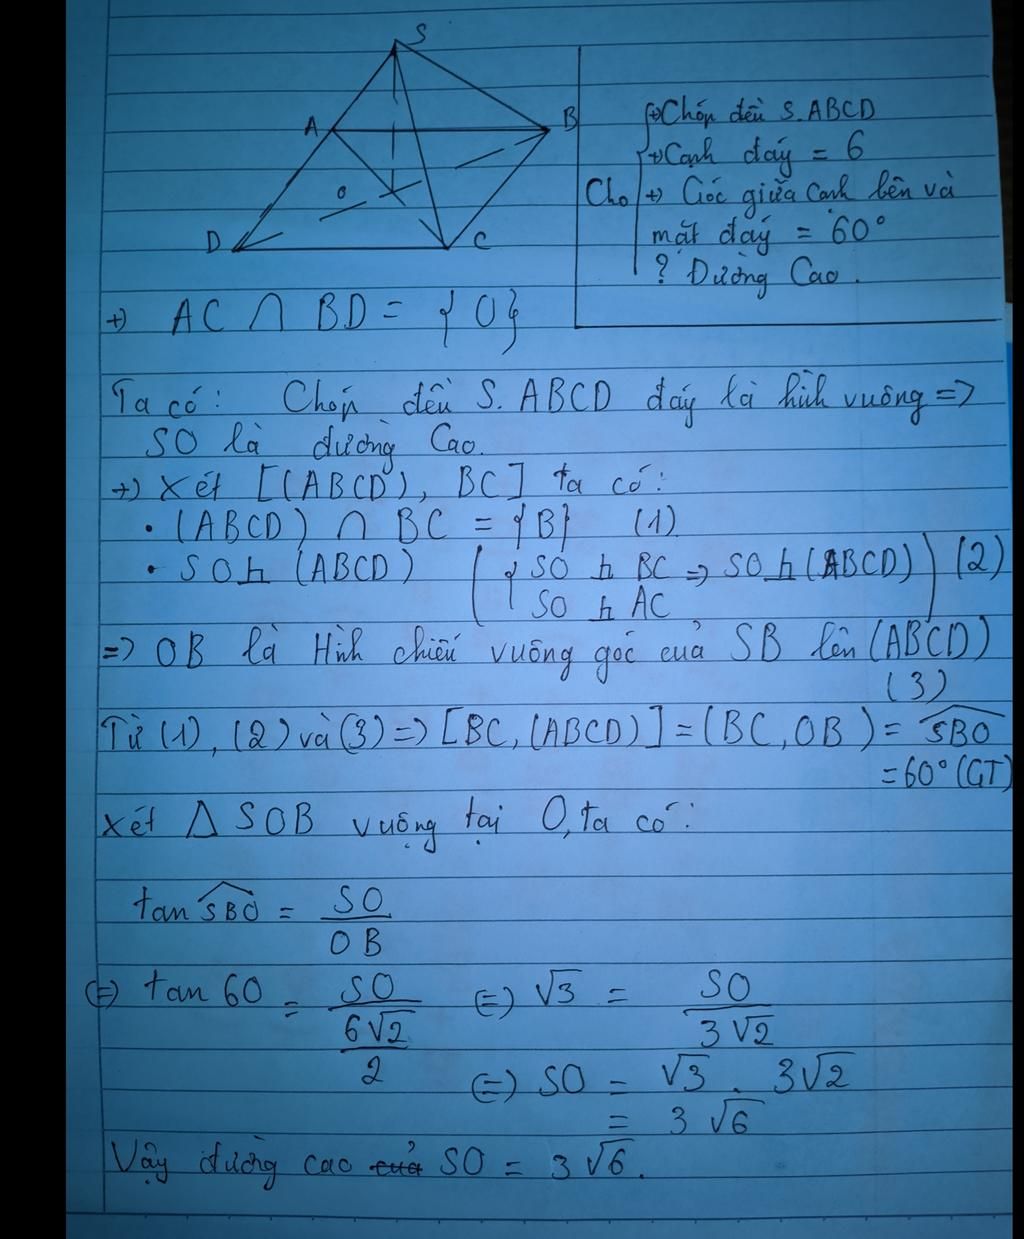 S
A
B
O
D
C
Cho
+) Chóp đều S.ABCD
+) Cạnh đáy = 6
+) Góc giữa cạnh bên và
mặt đáy = 60°
? Đường Cao.
+) AC ∩ BD = {O}
Ta có: Chóp đều S.ABCD đáy là hình vuông =>
SO là đường Cao.
+) Xét [(ABCD), BC] ta có:
• (ABCD) ∩ BC = {B} (1)
• SO ⊥ (ABCD) ({SO ⊥ BC => SO ⊥ (ABCD)) (2)
SO ⊥ AC
=> OB là Hình chiếu vuông góc của SB lên (ABCD)
(3)
Từ (1), (2) và (3) => [BC, (ABCD)] = (BC, OB) = SBO
= 60° (GT)
Xét Δ SOB vuông tại O, ta có:
tan SBO = SO / OB
(=) tan 60 = SO / (6√2 / 2) (=) √3 = SO / 3√2
(=) SO = √3 . 3√2
= 3√6
Vậy đường cao của SO = 3√6.